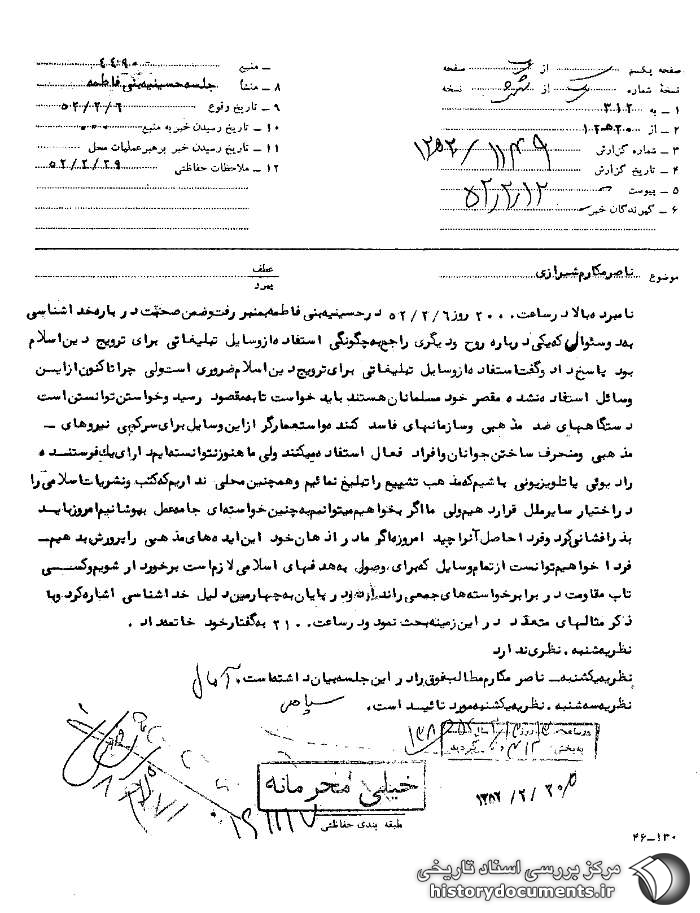 صفحه یکم از صفحه
نسخه شماره از نسخه
۱ ـ به ۳۱۲
۲ ـ از ۲۰ ه‍ ۱۲
۳ ـ شماره گزارش ۱۱۴۹
۴ ـ تاریخ گزارش ۵۲/۲/۱۲
۵ ـ پیوست
۶ ـ گیرندگان خبر
۷ ـ منبع
۸ ـ منشأ جلسه حسینیه بنی فاطمه
۹ ـ تاریخ وقوع ۵۲/۲/۶
۱۰ ـ تاریخ رسیدن خبر به منبع
۱۱ ـ تاریخ رسیدن خبر برهبر عملیات محل
۱۲ ـ ملاحظات حفاظتی ۵۲/۲/۲۹
موضوع ناصر مکارم شیرازی
عطف
پیرو
نامبرده بالا در ساعت ۲۰۰۰ روز ۵۲/۲/۶ در حسینیه بنی فاطمه بمنبر رفت و ضمن صحبت در باره خداشناسی
به دو سئوال که یکی درباره روح و دیگری راجع به چگونگی استفاده از وسایل تبلیغاتی برای ترویج دین اسلام
بود پاسخ داد و گفت استفاده از وسایل تبلیغاتی برای ترویج دین اسلام ضروری است ولی چرا تاکنون از این
وسائل استفاده نشده مقصر خود مسلمانان هستند باید خواست تا به مقصود رسید و خواستن توانستن است
دستگاههای ضد مذهبی و سازمانهای فاسد کننده و استعمارگر از این وسایل برای سرکوبی نیروهای ـ
مذهبی و منحرف ساختن جوانان و افراد فعال استفاده میکنند ولی ما هنوز نتوانسته‌ایم دارای یک فرستنده
رادیوئی یا تلویزیونی باشیم که مذهب تشییع را تبلیغ نمائیم و همچنین محلی نداریم که کتب و نشریات اسلامی را
در اختیار سایر ملل قرار دهیم ولی ما اگر بخواهیم میتوانیم به چنین خواسته‌ای جامه عمل بپوشانیم امروز باید
بذرافشانی کرد و فردا حاصل آنرا چید امروزه اگر ما در اذهان خود این ایده‌های مذهبی را پرورش بدهیم ـ
فردا خواهیم توانست از تمام وسایل که برای وصول به هدفهای اسلامی لازم است برخوردار شویم و کسی
تاب مقاومت در برابر خواسته‌های جمعی را ندارد و در پایان به چهارمین دلیل خداشناسی اشاره کرد و با
ذکر مثالهای متعدد در این زمینه بحث نمود و در ساعت ۲۱۰۰ به گفتار خود خاتمه داد .
نظریه شنبه . نظری ندارد
نظریه یکشنبه ـ ناصر مکارم مطالب فوق را در این جلسه بیان داشته است . آمال
نظریه سه‌شنبه . نظریه یکشنبه مورد تائید است .
خیلی محرمانه
طبقه بندی حفاظتی
۱۳۵۲/۲/۲۰
۴۶ـ۱۳۰
مرکز بررسی اسناد تاریخی
historydocuments.ir